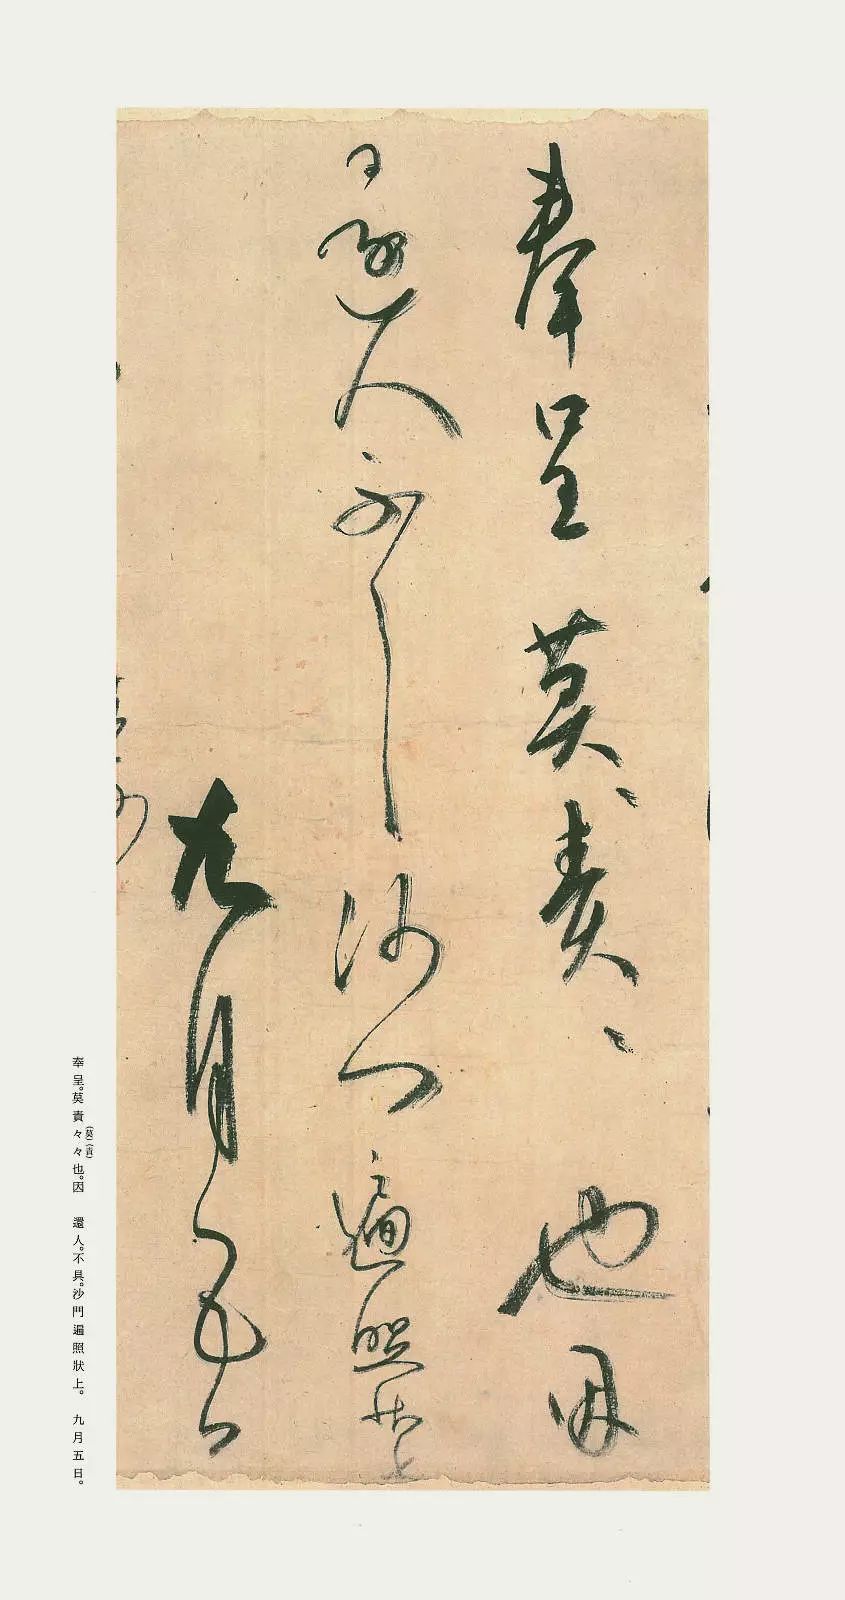 奉呈莫〻責〻也因
還人不具沙門遍照狀上
九月五日
奉呈。莫責々々也。因　還人。不具。沙門遍照狀上。　九月五日。
（莫）（責）